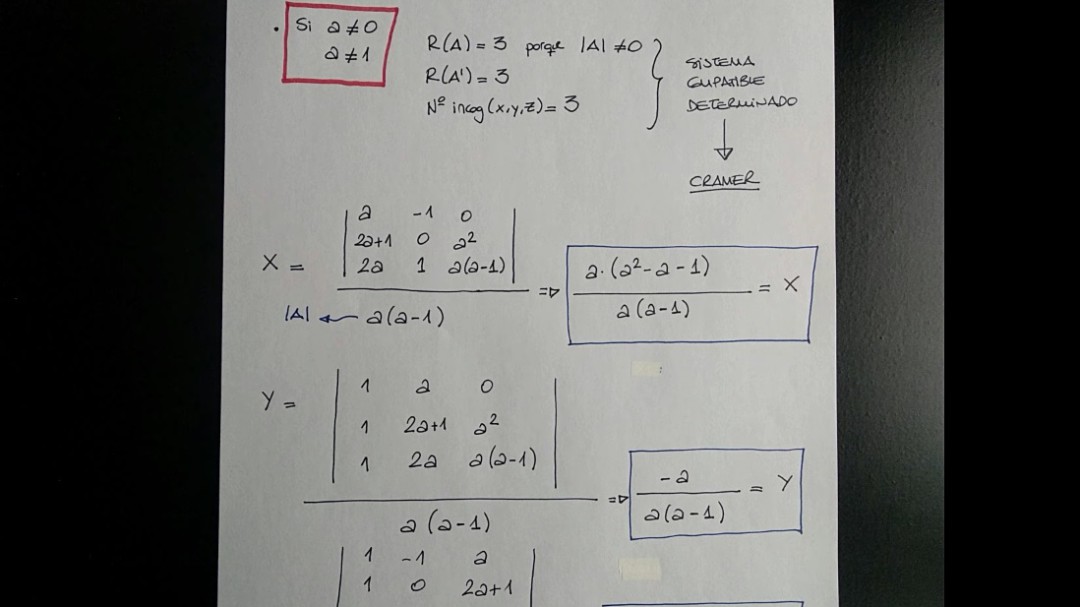 . Si a ≠ 0
a ≠ 1
R(A) = 3 porque |A| ≠ 0
R(A') = 3
Nº incog (x, y, z) = 3
SISTEMA
COMPATIBLE
DETERMINADO
CRAMER
| a -1 0 |
| 2a+1 0 a² |
X = | 2a 1 a(a-1) |
|A| ← a(a-1)
⇒ a·(a²-a-1) / a(a-1) = X
| 1 a 0 |
Y = | 1 2a+1 a² |
| 1 2a a(a-1) |
a(a-1)
⇒ -a / a(a-1) = Y
| 1 -1 a |
| 1 0 2a+1 |